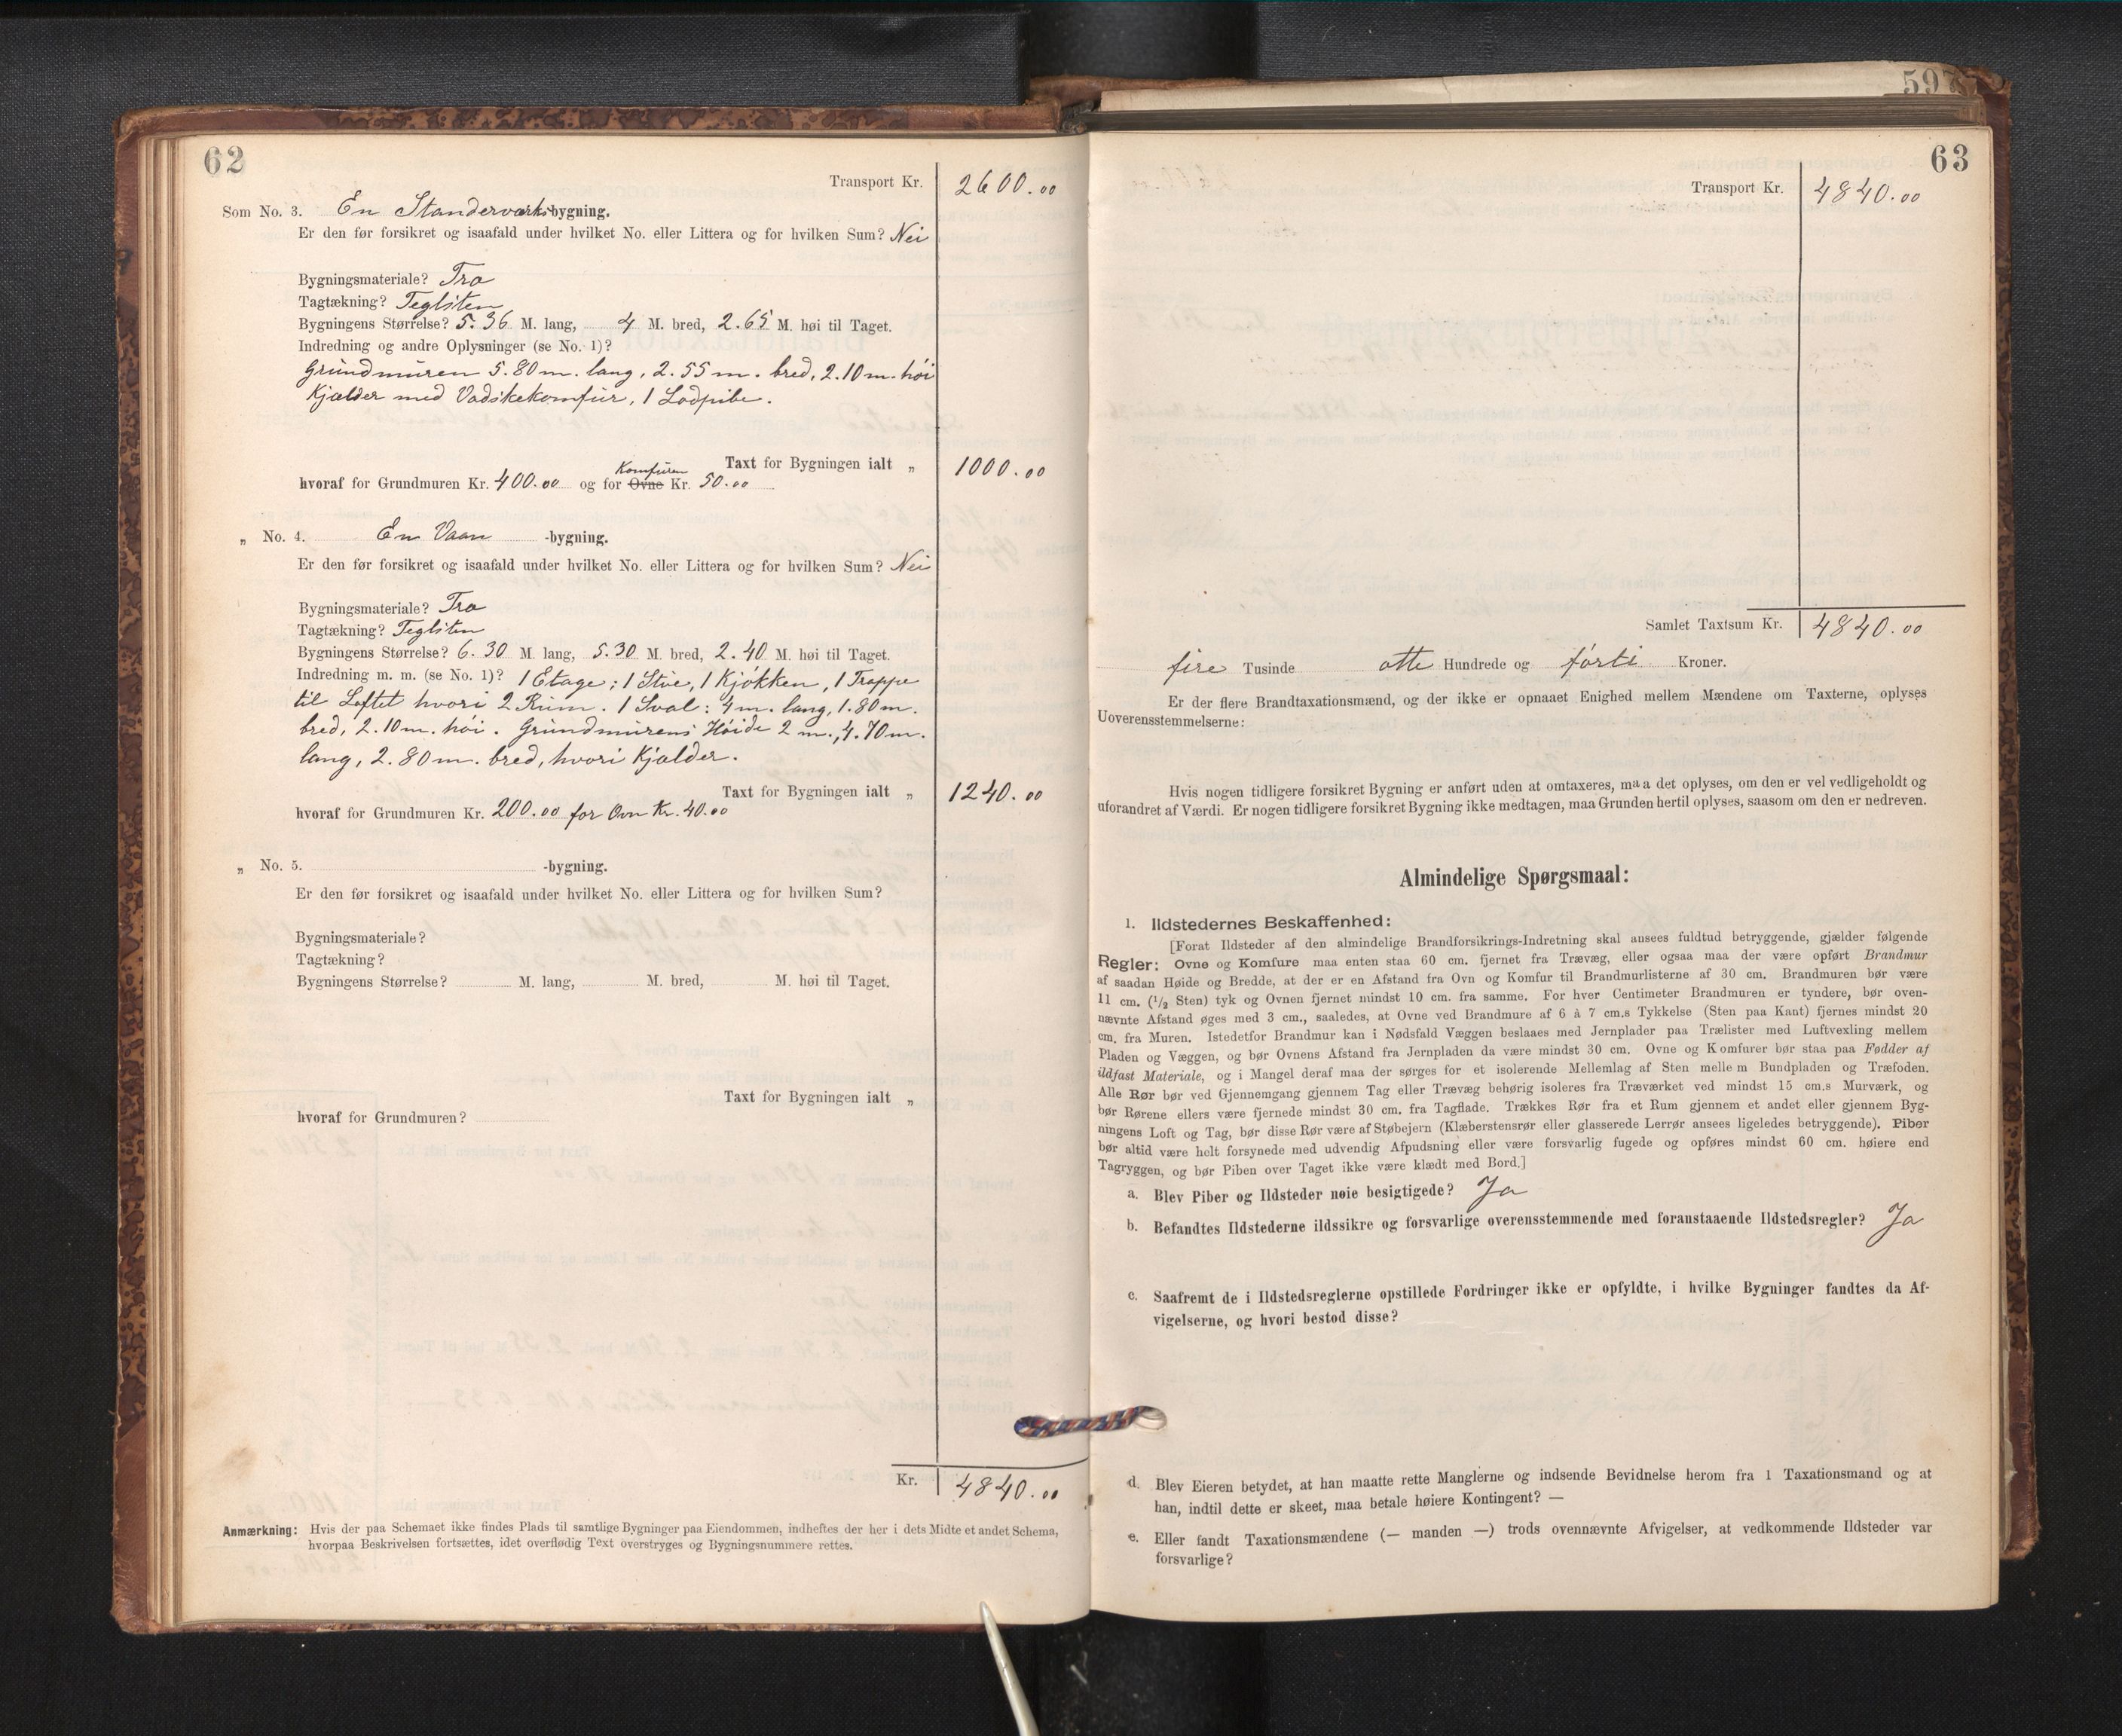 62
Transport Kr. 2600.00
Som No. 3. En Standerværksbygning.
Er den før forsikret og isaafald under hvilket No. eller Littera og for hvilken Sum? Nei
Bygningsmateriale? Træ
Tagtækning? Teglsten
Bygningens Størrelse? 5.36 M. lang, 4 M. bred, 2.65 M. høi til Taget.
Indredning og andre Oplysninger (se No. 1)?
Grundmuren 5.80 m. lang, 2.55 m. bred, 2.10 m. høi
Kjælder med Vadskekomfur, 1 Lodpibe.
Taxt for Bygningen ialt „ 1000.00
Komfuren
hvoraf for Grundmuren Kr. 400.00 og for Ovne Kr. 50.00
„ No. 4. En Vaan -bygning.
Er den før forsikret og isaafald under hvilket No. eller Littera og for hvilken Sum? Nei
Bygningsmateriale? Træ
Tagtækning? Teglsten
Bygningens Størrelse? 6.30 M. lang, 5.30 M. bred, 2.40 M. høi til Taget.
Indredning m. m. (se No. 1)? 1 Etage; 1 Stue, 1 Kjøkken, 1 Trappe
til Loftet hvori 2 Rum. 1 Sval: 4 m. lang, 1.80 m.
bred, 2.10 m. høi. Grundmurens Høide 2 m., 4.70 m.
lang, 2.80 m. bred, hvori Kjælder.
Taxt for Bygningen ialt „ 1240.00
hvoraf for Grundmuren Kr. 200.00 for Ovn Kr. 40.00
„ No. 5. -bygning.
Er den før forsikret og isaafald under hvilket No. eller Littera og for hvilken Sum?
Bygningsmateriale?
Tagtækning?
Bygningens Størrelse? M. lang, M. bred, M. høi til Taget.
Taxt for Bygningen ialt „
hvoraf for Grundmuren?
Kr. 4840.00
Anmærkning: Hvis der paa Schemaet ikke findes Plads til samtlige Bygninger paa Eiendommen, indheftes der her i dets Midte et andet Schema,
hvorpaa Beskrivelsen fortsættes, idet overflødig Text overstryges og Bygningsnummere rettes.
597
63
Transport Kr. 4840.00
Samlet Taxtsum Kr. 4840.00
fire Tusinde otte Hundrede og førti Kroner.
Er der flere Brandtaxationsmænd, og der ikke er opnaaet Enighed mellem Mændene om Taxterne, oplyses
Uoverensstemmelserne:
Hvis nogen tidligere forsikret Bygning er anført uden at omtaxeres, maa det oplyses, om den er vel vedligeholdt og
uforandret af Værdi. Er nogen tidligere forsikret Bygning ikke medtagen, maa Grunden hertil oplyses, saasom om den er nedreven.
Almindelige Spørgsmaal:
1. Ildstedernes Beskaffenhed:
[Forat Ildsteder af den almindelige Brandforsikrings-Indretning skal ansees fuldtud betryggende, gjælder følgende
Regler: Ovne og Komfure maa enten staa 60 cm. fjernet fra Trævæg, eller ogsaa maa der være opført Brandmur
af saadan Høide og Bredde, at der er en Afstand fra Ovn og Komfur til Brandmurlisterne af 30 cm. Brandmuren bør være
11 cm. (1/2 Sten) tyk og Ovnen fjernet mindst 10 cm. fra samme. For hver Centimeter Brandmuren er tyndere, bør oven-
nævnte Afstand øges med 3 cm., saaledes, at Ovne ved Brandmure af 6 à 7 cm.s Tykkelse (Sten paa Kant) fjernes mindst 20
cm. fra Muren. Istedetfor Brandmur kan i Nødsfald Væggen beslaaes med Jernplader paa Trælister med Luftvexling mellem
Pladen og Væggen, og bør Ovnens Afstand fra Jernpladen da være mindst 30 cm. Ovne og Komfurer bør staa paa Fødder af
ildfast Materiale, og i Mangel deraf maa der sørges for et isolerende Mellemlag af Sten mellem Bundpladen og Træfoden.
Alle Rør bør ved Gjennemgang gjennem Tag eller Trævæg behørig isoleres fra Træværket ved mindst 15 cm.s Murværk, og
bør Rørene ellers være fjernede mindst 30 cm. fra Tagflade. Trækkes Rør fra et Rum gjennem et andet eller gjennem Byg-
ningens Loft og Tag, bør disse Rør være af Støbejern (Klæberstensrør eller glasserede Lerrør ansees ligeledes betryggende). Piber
bør altid være helt forsynede med udvendig Afpudsning eller være forsvarlig fugede og opføres mindst 60 cm. høiere end
Tagryggen, og bør Piben over Taget ikke være klædt med Bord.]
a. Blev Piber og Ildsteder nøie besigtigede? Ja
b. Befandtes Ildstederne ildssikre og forsvarlige overensstemmende med foranstaaende Ildstedsregler? Ja
c. Saafremt de i Ildstedsreglerne opstillede Fordringer ikke er opfyldte, i hvilke Bygninger fandtes da Af-
vigelserne, og hvori bestod disse?
d. Blev Eieren betydet, at han maatte rette Manglerne og indsende Bevidnelse herom fra 1 Taxationsmand og at
han, indtil dette er skeet, maa betale høiere Kontingent? —
e. Eller fandt Taxationsmændene (— manden —) trods ovennævnte Afvigelser, at vedkommende Ildsteder var
forsvarlige?